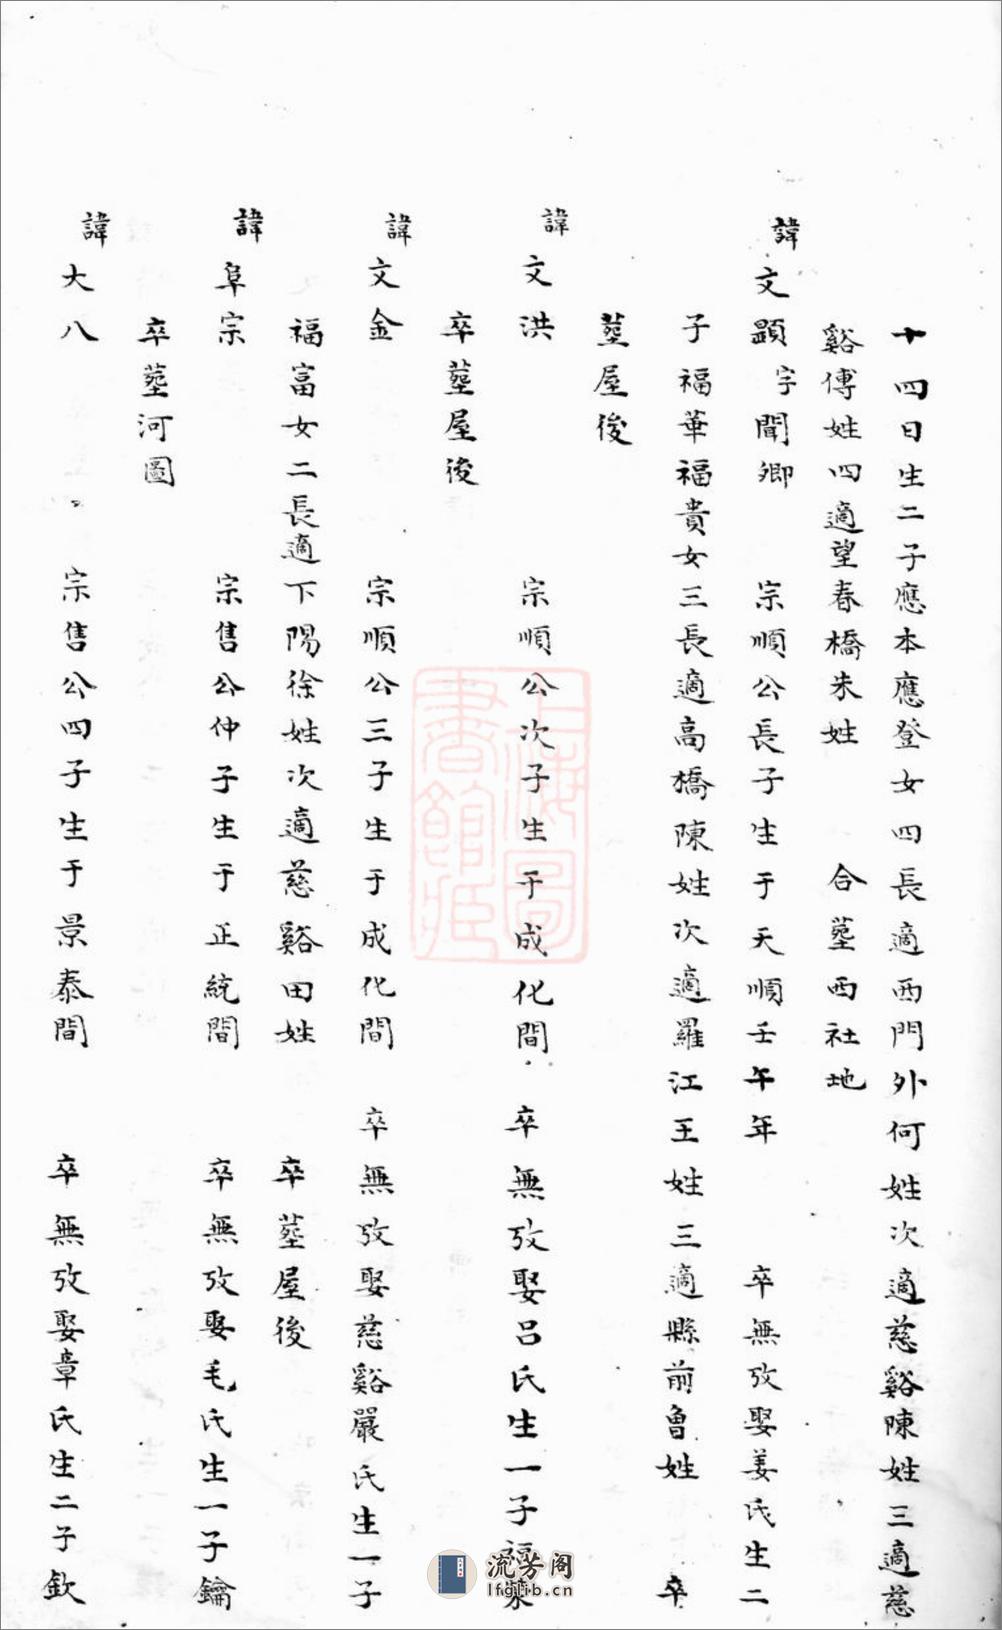 十四日生二子應本應登女四長適西門外何姓次適慈谿陳姓三適慈
谿傅姓四適望春橋朱姓　合塟西社地
諱文顕字聞卿　宗順公長子生于天順壬午年　卒無攷娶姜氏生二
子福華福貴女三長適高橋陳姓次適羅江王姓三適縣前魯姓　卒
塟屋後
諱文洪　宗順公次子生于成化間　卒無攷娶呂氏生一子福
卒塟屋後
諱文金　宗順公三子生于成化間　卒無攷娶慈谿嚴氏生一子
福富女二長適下陽徐姓次適慈谿田姓　卒塟屋後
諱阜宗　宗售公仲子生于正統間　卒無攷娶毛氏生一子鑰
卒塟河圖
諱大八　宗售公四子生于景泰間　卒無攷娶章氏生二子欽
上海圖
書館藏
流芳阁
lfglib.cn